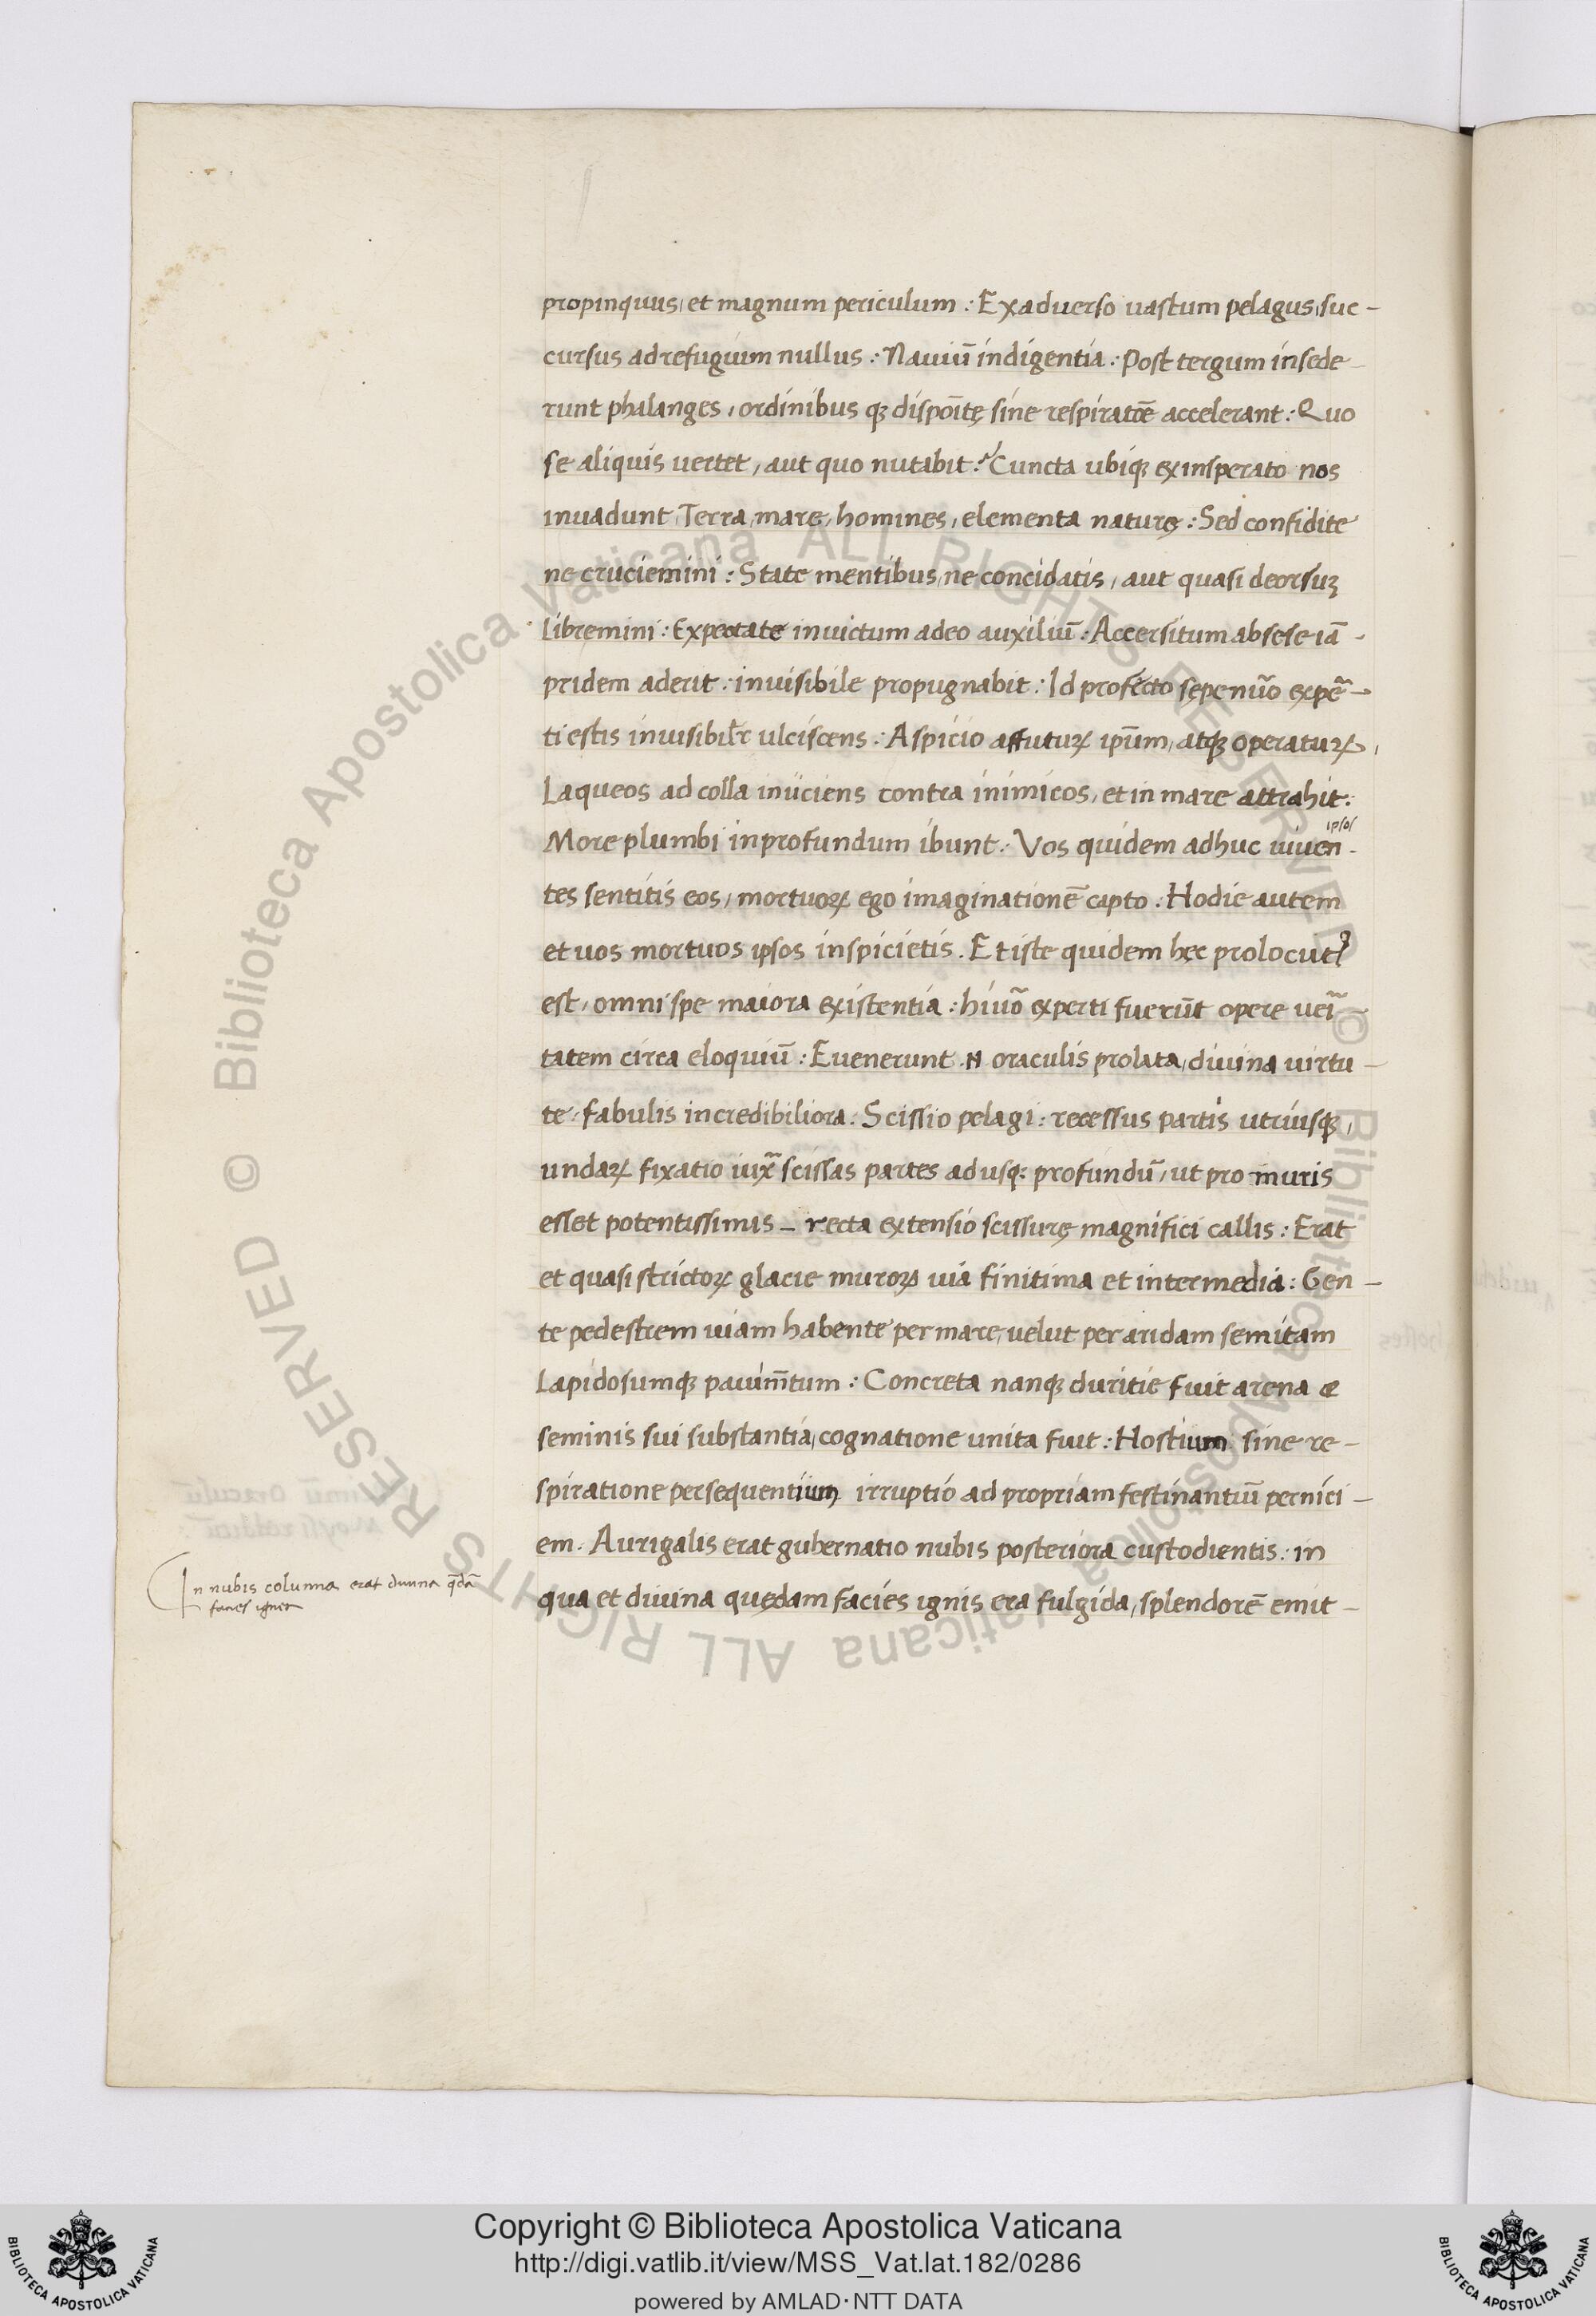 propinquus, et magnum periculum : Ex aduerso uastum pelagus, suc-
cursus ad refugium nullus : Nauiū indigentia : Post tergum insede-
runt phalanges, ordinibus qȝ dispoītę sine respiratōē accelerant : Quo
se aliquis uertet, aut quo nutabit ? Cuncta ubiqȝ ex insperato nos
inuadunt, Terra, mare, homines, elementa naturę : Sed confidite
ne cruciemini : State mentibus, ne concidatis, aut quasi deorsuȝ
libremini : Expectate inuictum a deo auxiliū : Accersitum ab sese iā-
pridem aderit : inuisibile propugnabit : Id profecto sępenūo expē-
ti estis inuisibilr̄ ulciscens : Aspicio affuturꝝ ip̄um, atqȝ operaturꝝ,
Laqueos ad colla iniiciens contra inimicos, et in mare attrahit :
ipsos
More plumbi in profundum ibunt : Vos quidem adhuc uiuen-
tes sentitis eos, mortuoꝝ ego imaginationē capto : Hodie autem
et uos mortuos ipsos inspicietis . Et iste quidem hęc prolocutꝰ
est, omni spe maiora existentia : hi uō experti fuerūt opere ueī-
tatem circa eloquiū : Euenerunt .N. oraculis prolata, diuina uirtu-
te, fabulis incredibiliora : Scissio pelagi : recessus partis utriusqȝ,
undaꝝ fixatio iuxᷓ scissas partes ad usqȝ profundū, ut pro muris
esset potentissimis – recta extensio scissurę magnifici callis : Erat
et quasi strictoꝝ glacie muroꝝ uia finitima et intermedia : Gen-
te pedestrem uiam habente per mare, uelut per aridam semitam
Lapidosumqȝ pauim̄tum : Concreta nanqȝ duritie fuit arena &
seminis sui substantia, cognatione unita fuit : Hostium sine re-
spiratione persequentium irruptio ad propriam festinantiū pernici-
em . Aurigalis erat gubernatio nubis posteriora custodientis : in
qua et diuina quędam facies ignis era fulgida, splendorē emit-
In nubis columna erat diuina q̄dā
facies ignea
© Biblioteca Apostolica Vaticana ALL RIGHTS RESERVED
© Biblioteca Apostolica Vaticana ALL RIGHTS RESERVED
Copyright © Biblioteca Apostolica Vaticana
http://digi.vatlib.it/view/MSS_Vat.lat.182/0286
powered by AMLAD·NTT DATA
BIBLIOTECA APOSTOLICA VATICANA
BIBLIOTECA APOSTOLICA VATICANA